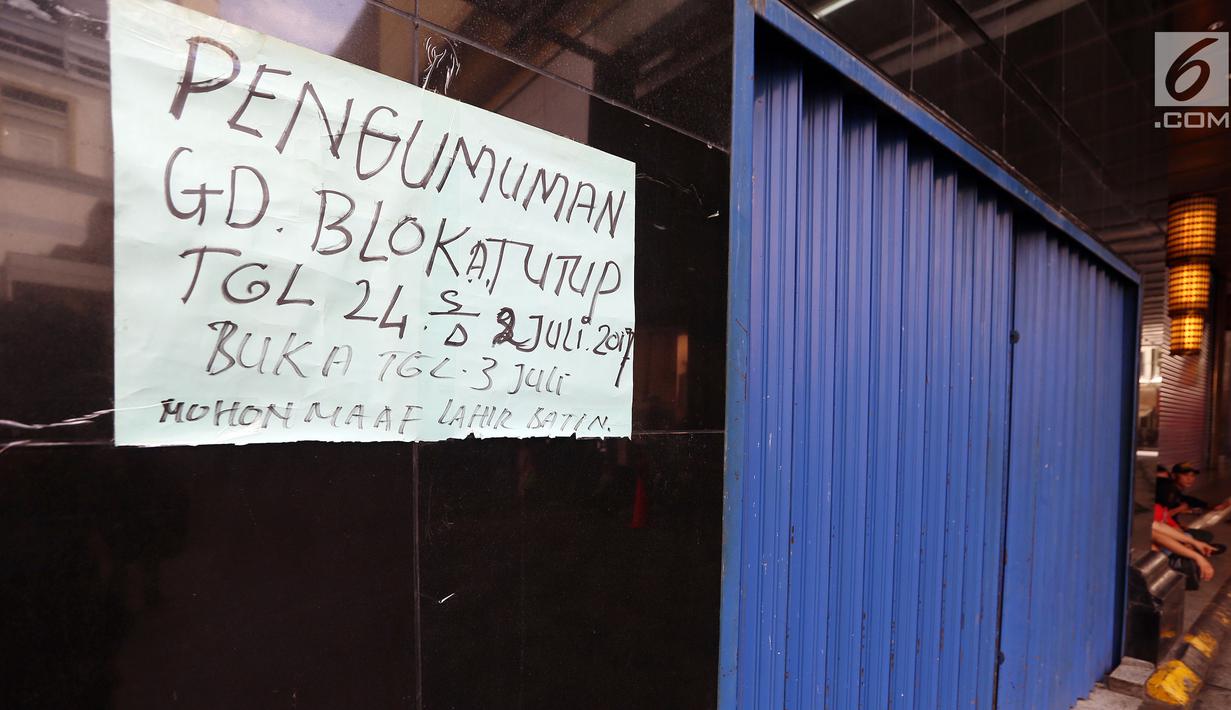 PENGUMUMAN
GD. BLOK A. TUTUP
TGL 24. S/D 2 JULI. 2017
BUKA TGL. 3 JULI
MOHON MAAF LAHIR BATIN.
6
.COM